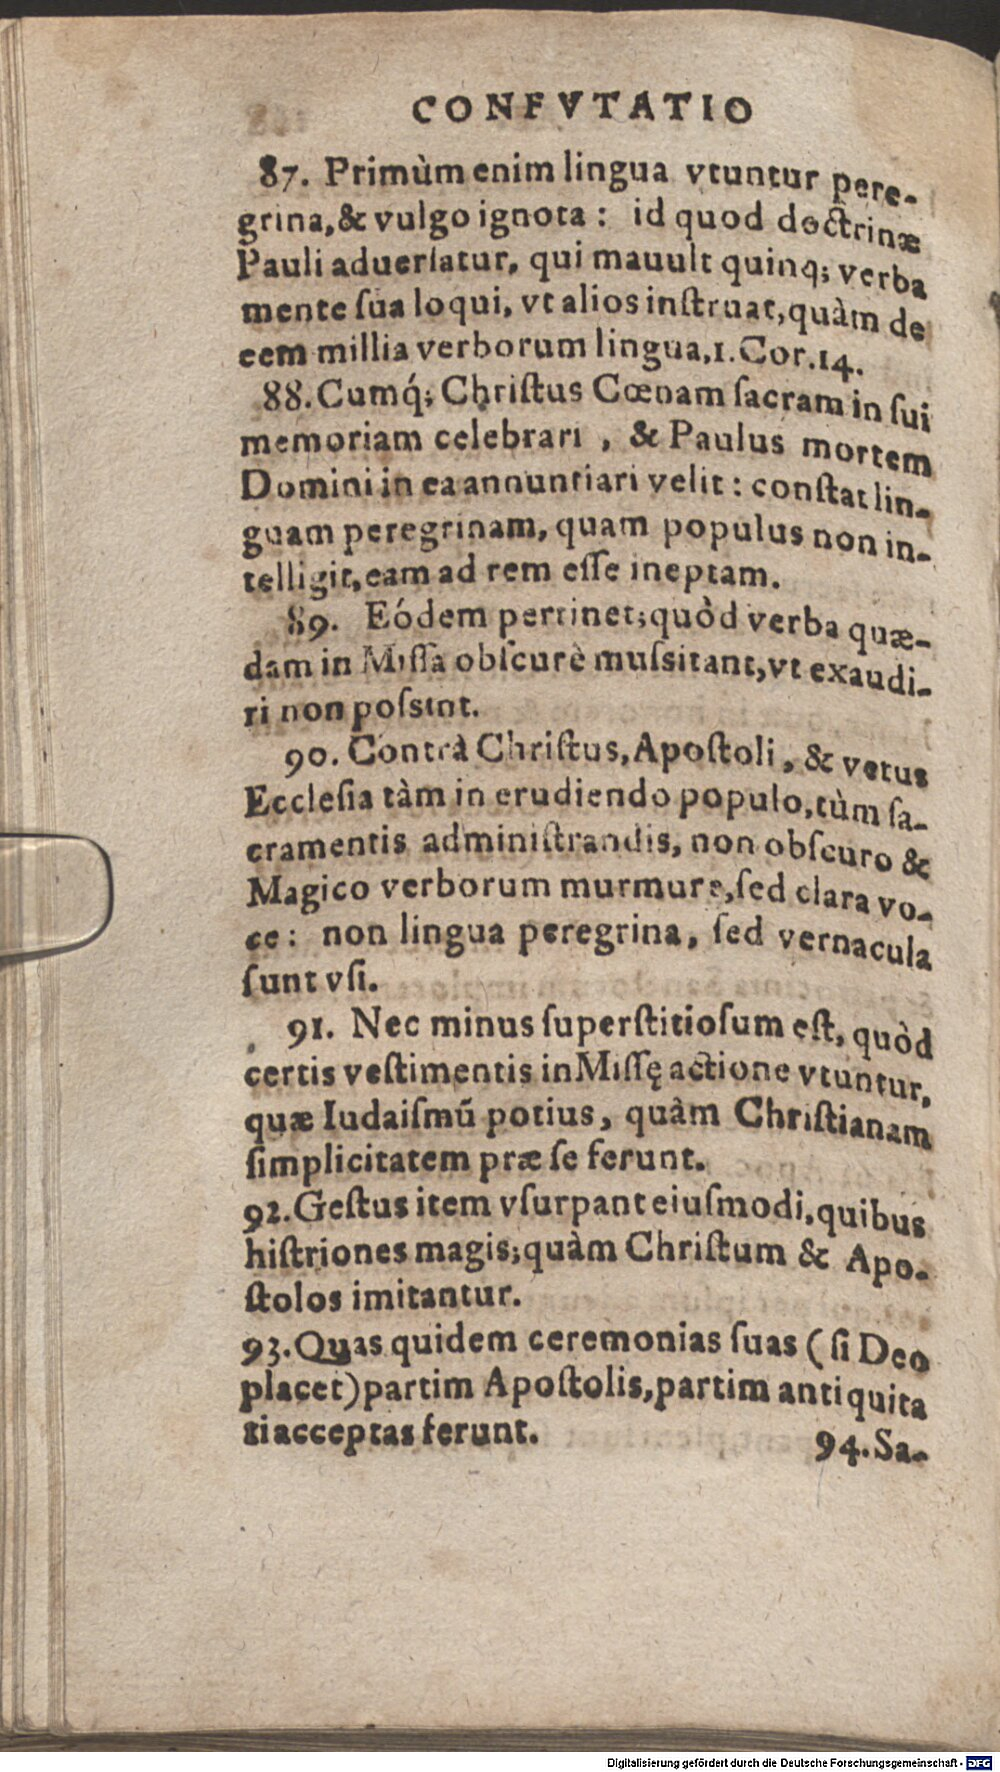 CONFVTATIO
87. Primùm enim lingua vtuntur pere-
grina, & vulgo ignota: id quod doctrinæ
Pauli aduerſatur, qui mauult quinq; verba
mente ſua loqui, vt alios inſtruat, quàm de
cem millia verborum lingua, 1. Cor. 14.
88. Cumq́; Chriſtus Cœnam ſacram in ſui
memoriam celebrari, & Paulus mortem
Domini in ea annuntiari velit: conſtat lin-
guam peregrinam, quam populus non in-
telligit, eam ad rem eſſe ineptam.
89. Eódem pertinet; quòd verba quæ-
dam in Miſſa obſcurè muſsitant, vt exaudi-
ri non poſsint.
90. Contrà Chriſtus, Apoſtoli, & vetus
Eccleſia tàm in erudiendo populo, tùm ſa-
cramentis adminiſtrandis, non obſcuro &
Magico verborum murmure, ſed clara vo-
ce: non lingua peregrina, ſed vernacula
ſunt vſi.
91. Nec minus ſuperſtitioſum eſt, quòd
certis veſtimentis in Miſſę actione vtuntur,
quæ Iudaiſmũ potius, quàm Chriſtianam
ſimplicitatem præ ſe ferunt.
92. Geſtus item vſurpant eiuſmodi, quibus
hiſtriones magis; quàm Chriſtum & Apo-
ſtolos imitantur.
93. Quas quidem ceremonias ſuas (ſi Deo
placet) partim Apoſtolis, partim antiquita
ti acceptas ferunt.
94. Sa-
Digitalisierung gefördert durch die Deutsche Forschungsgemeinschaft - DFG